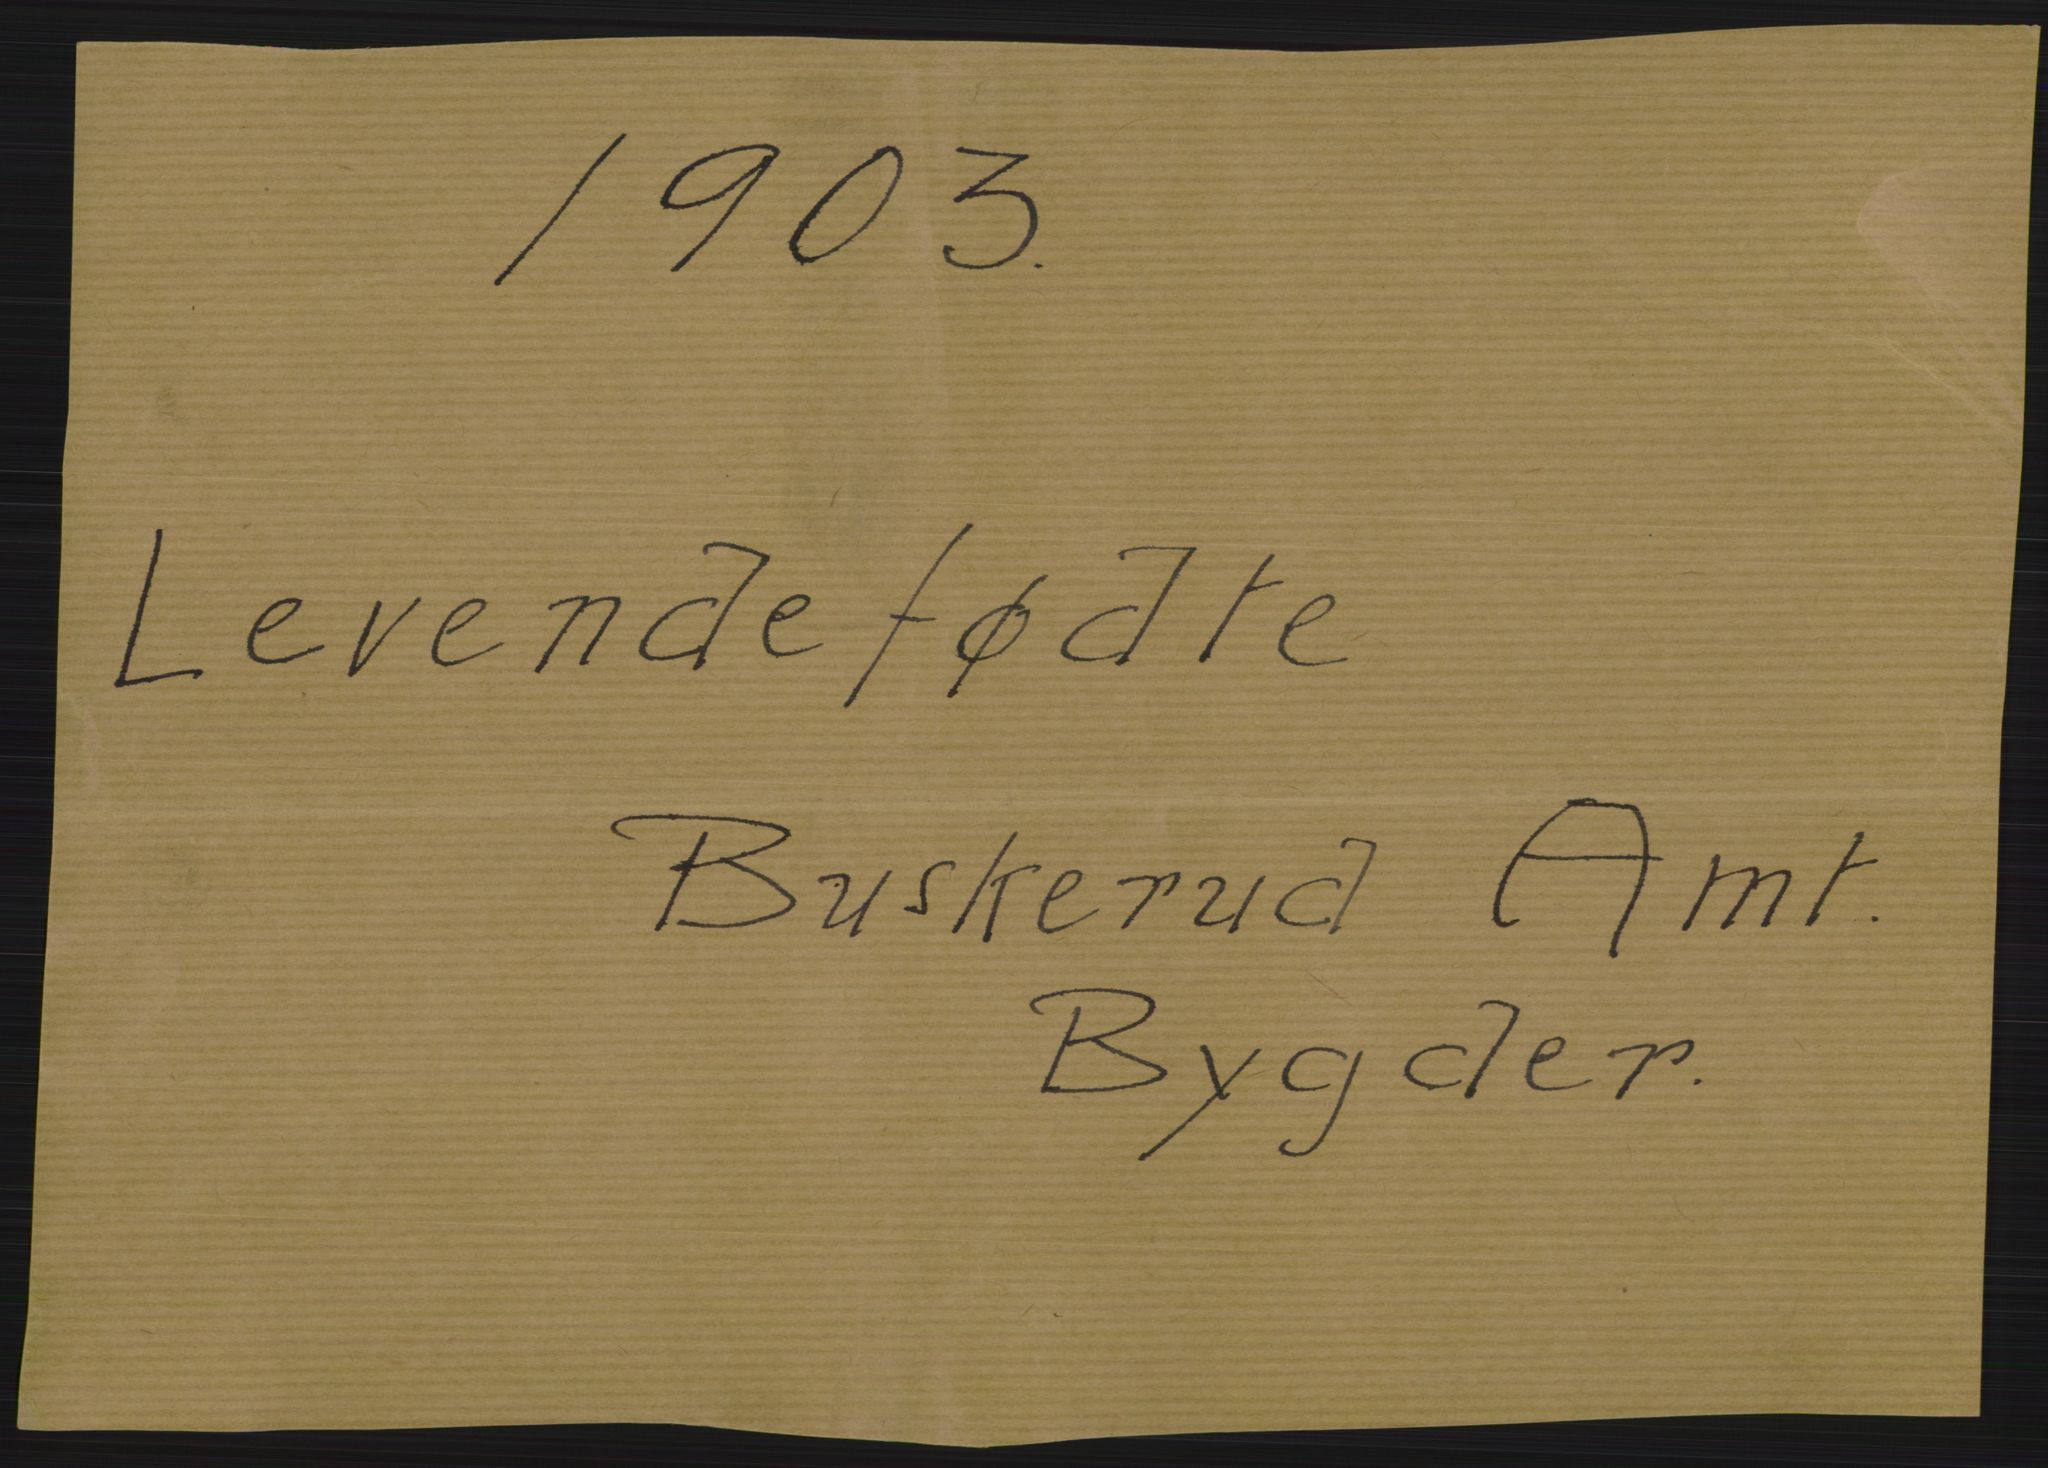 1903.
Levendefødte
Buskerud Amt.
Bygder.